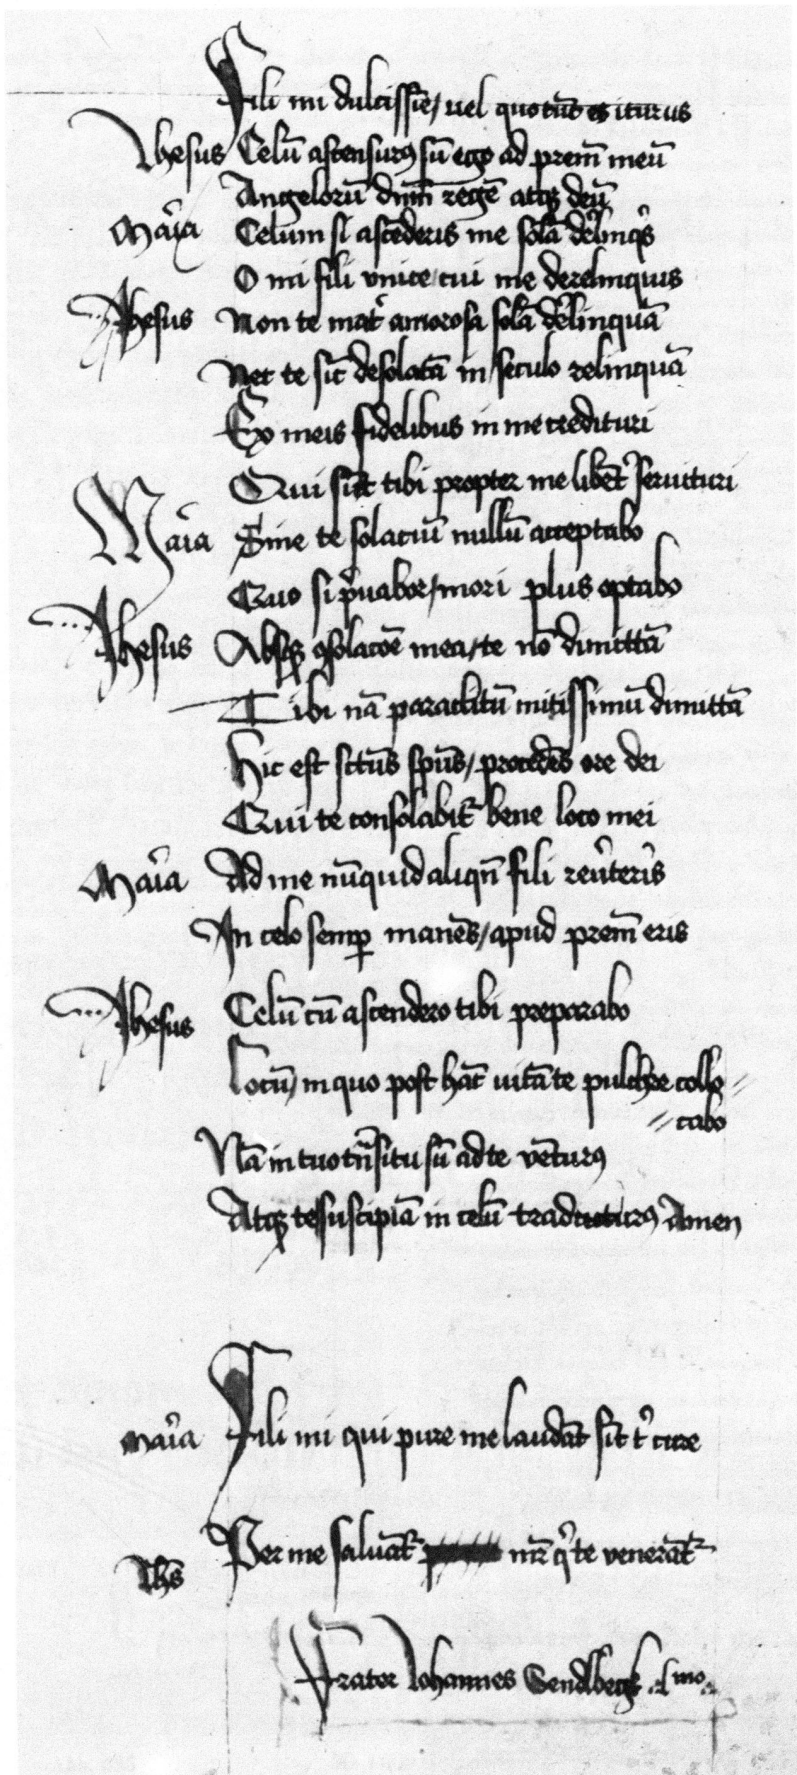 Fili mi dulcissīe / uel quo tūc es iturus
Jhesus Celū ascensurꝯ sū ego ad prem̄ meū
Angelorū dnm̄ regē atqꝫ deū
Maria Celum si ascēderis me solā derlinqͥs
O mi fili vnice / cui me derelinquis
Jhesus Non te matˀ amorosa solā derlinquā
Nec te sic̄ desolatā in seculo relinquā
Ex meis fidelibus in me credituri
Qui sūt tibi propter me libēt seruituri
Maria Sine te solaciū nullū acceptabo
Quo si pͥuabor / mori plus optabo
Jhesus Absqꝫ ꝯsolacōe mea / te nō dimittā
Tibi nā paraclitū mitissimū dimittā
Hic est sctūs spūs / procedēs ore dei
Qui te consolabit᷑ bene loco mei
Maria Ad me nūquid aliqn̄ fili reuˀterˀis
In celo semꝑ manēs / apud prem̄ eris
Jhesus Celū cū ascendero tibi preparabo
Locū / in quo post hāc uitā te pulchre collo //
// cabo
Nā in tuo trn̄situ sū ad te vēturꝯ
Atqꝫ te suscipiā in celū traducturꝯ Amen
Maria Fili mi qui pure me laudāt sīt tˀ cure
Jhs̄ Per me saluāt᷑ mr̄ qͥ te venerāt᷑
Frater Johannes Sendlbeck .l.mo.